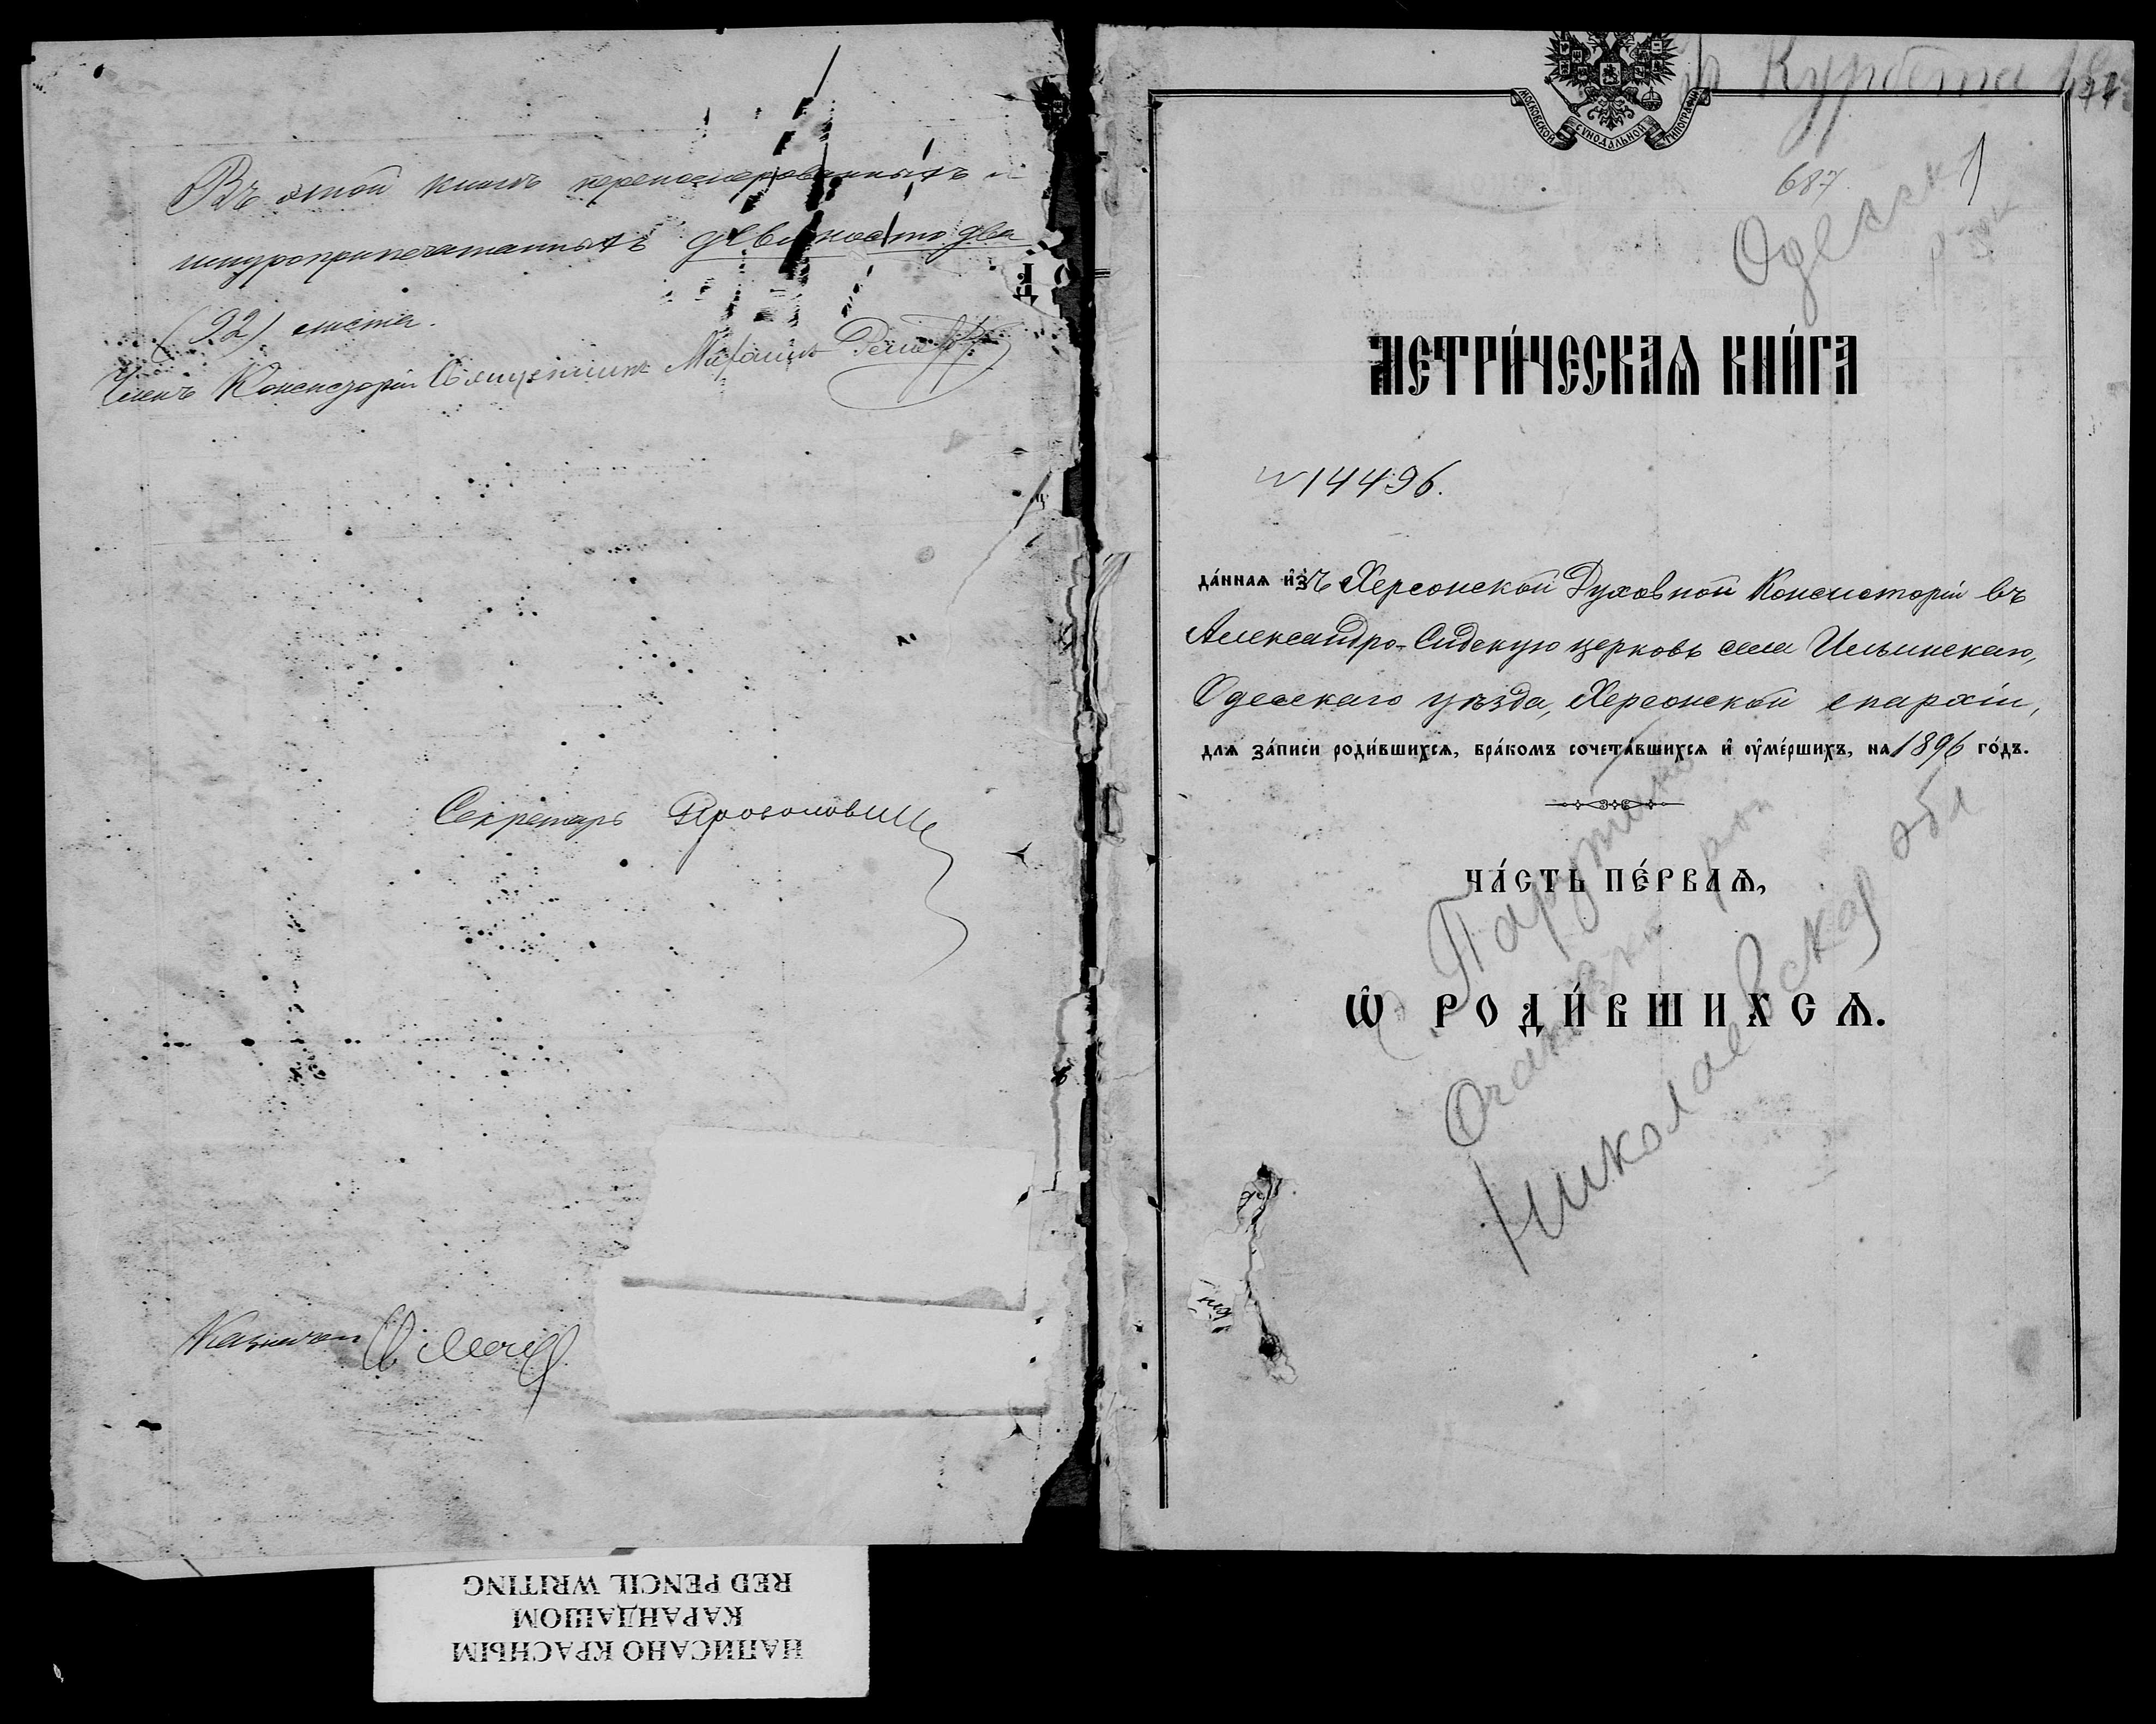 Въ этой книгѣ перенумерованныхъ и
шнуроприпечатанныхъ девяносто два
(92) листа.
Членъ Консисторіи Священникъ
Секретарь
Казначей
МОСКОВСКОЙ СѴНОДАЛЬНОЙ ТИПОГРАФІИ
Курбета
687
1
МЕТРИ́ЧЕСКАѦ КНИ́ГА
№ 14496.
да́ннаѧ и҆зъ Херсонской Духовной Консисторіи въ
Александро-Свирскую церковь села Ильинскаго,
Одесскаго уѣзда, Херсонской епархіи,
длѧ за́писи роди́вшихсѧ, бра́комъ сочета́вшихсѧ и҆ ᲂу҆ме́ршихъ, на 1896 го́дъ.
ЧА́СТЬ ПЕ́РВАѦ,
Ѽ РОДИ́ВШИХСѦ.
Очаковский рон
Николаевская обл
НАПИСАНО КРАСНЫМ
КАРАНДАШОМ
RED PENCIL WRITING